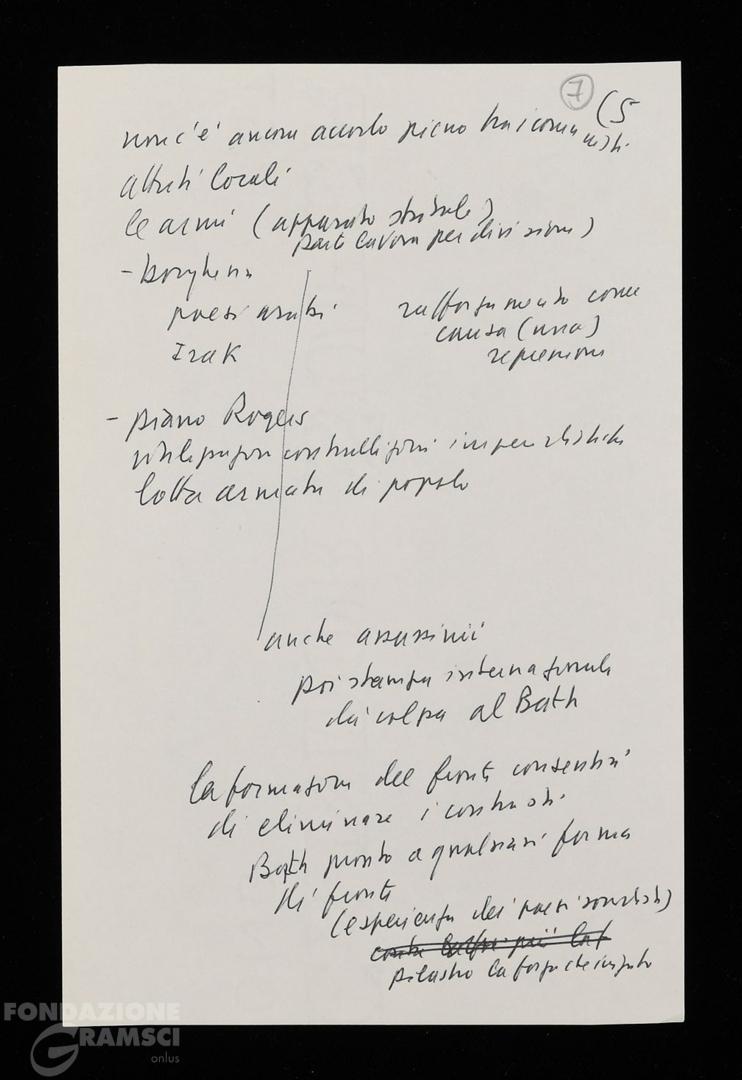 7 (5
non c'è ancora accordo pieno tra i comunisti
attriti locali
le armi (apparato statale)
parte lavora per divisione)
- borghesia
paesi arabi rafforzamento come
causa (una)
Irak repressione
- piano Rogers
contraddizioni imperialistiche
lotta armata di popolo
anche assassinii
poi stampa internazionale
dà colpa al Bath
la formazione del fronte consentirà
di eliminare i contrasti
Bath pronto a qualsiasi forma
di fronte
(esperienza dei paesi socialisti)
pilastro la forza che
FONDAZIONE
GRAMSCI
onlus